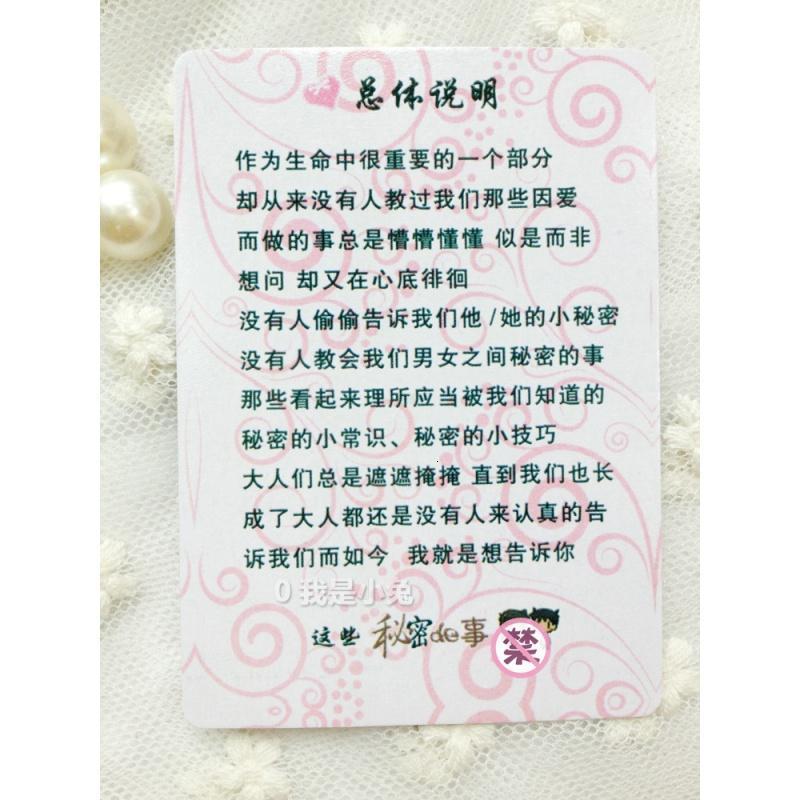 总体说明
作为生命中很重要的一个部分
却从来没有人教过我们那些因爱
而做的事总是懵懵懂懂 似是而非
想问 却又在心底徘徊
没有人偷偷告诉我们他/她的小秘密
没有人教会我们男女之间秘密的事
那些看起来理所应当被我们知道的
秘密的小常识、秘密的小技巧
大人们总是遮遮掩掩 直到我们也长
成了大人都还是没有人来认真的告
诉我们而如今 我就是想告诉你
0 我是小兔
这些 秘密de事
禁